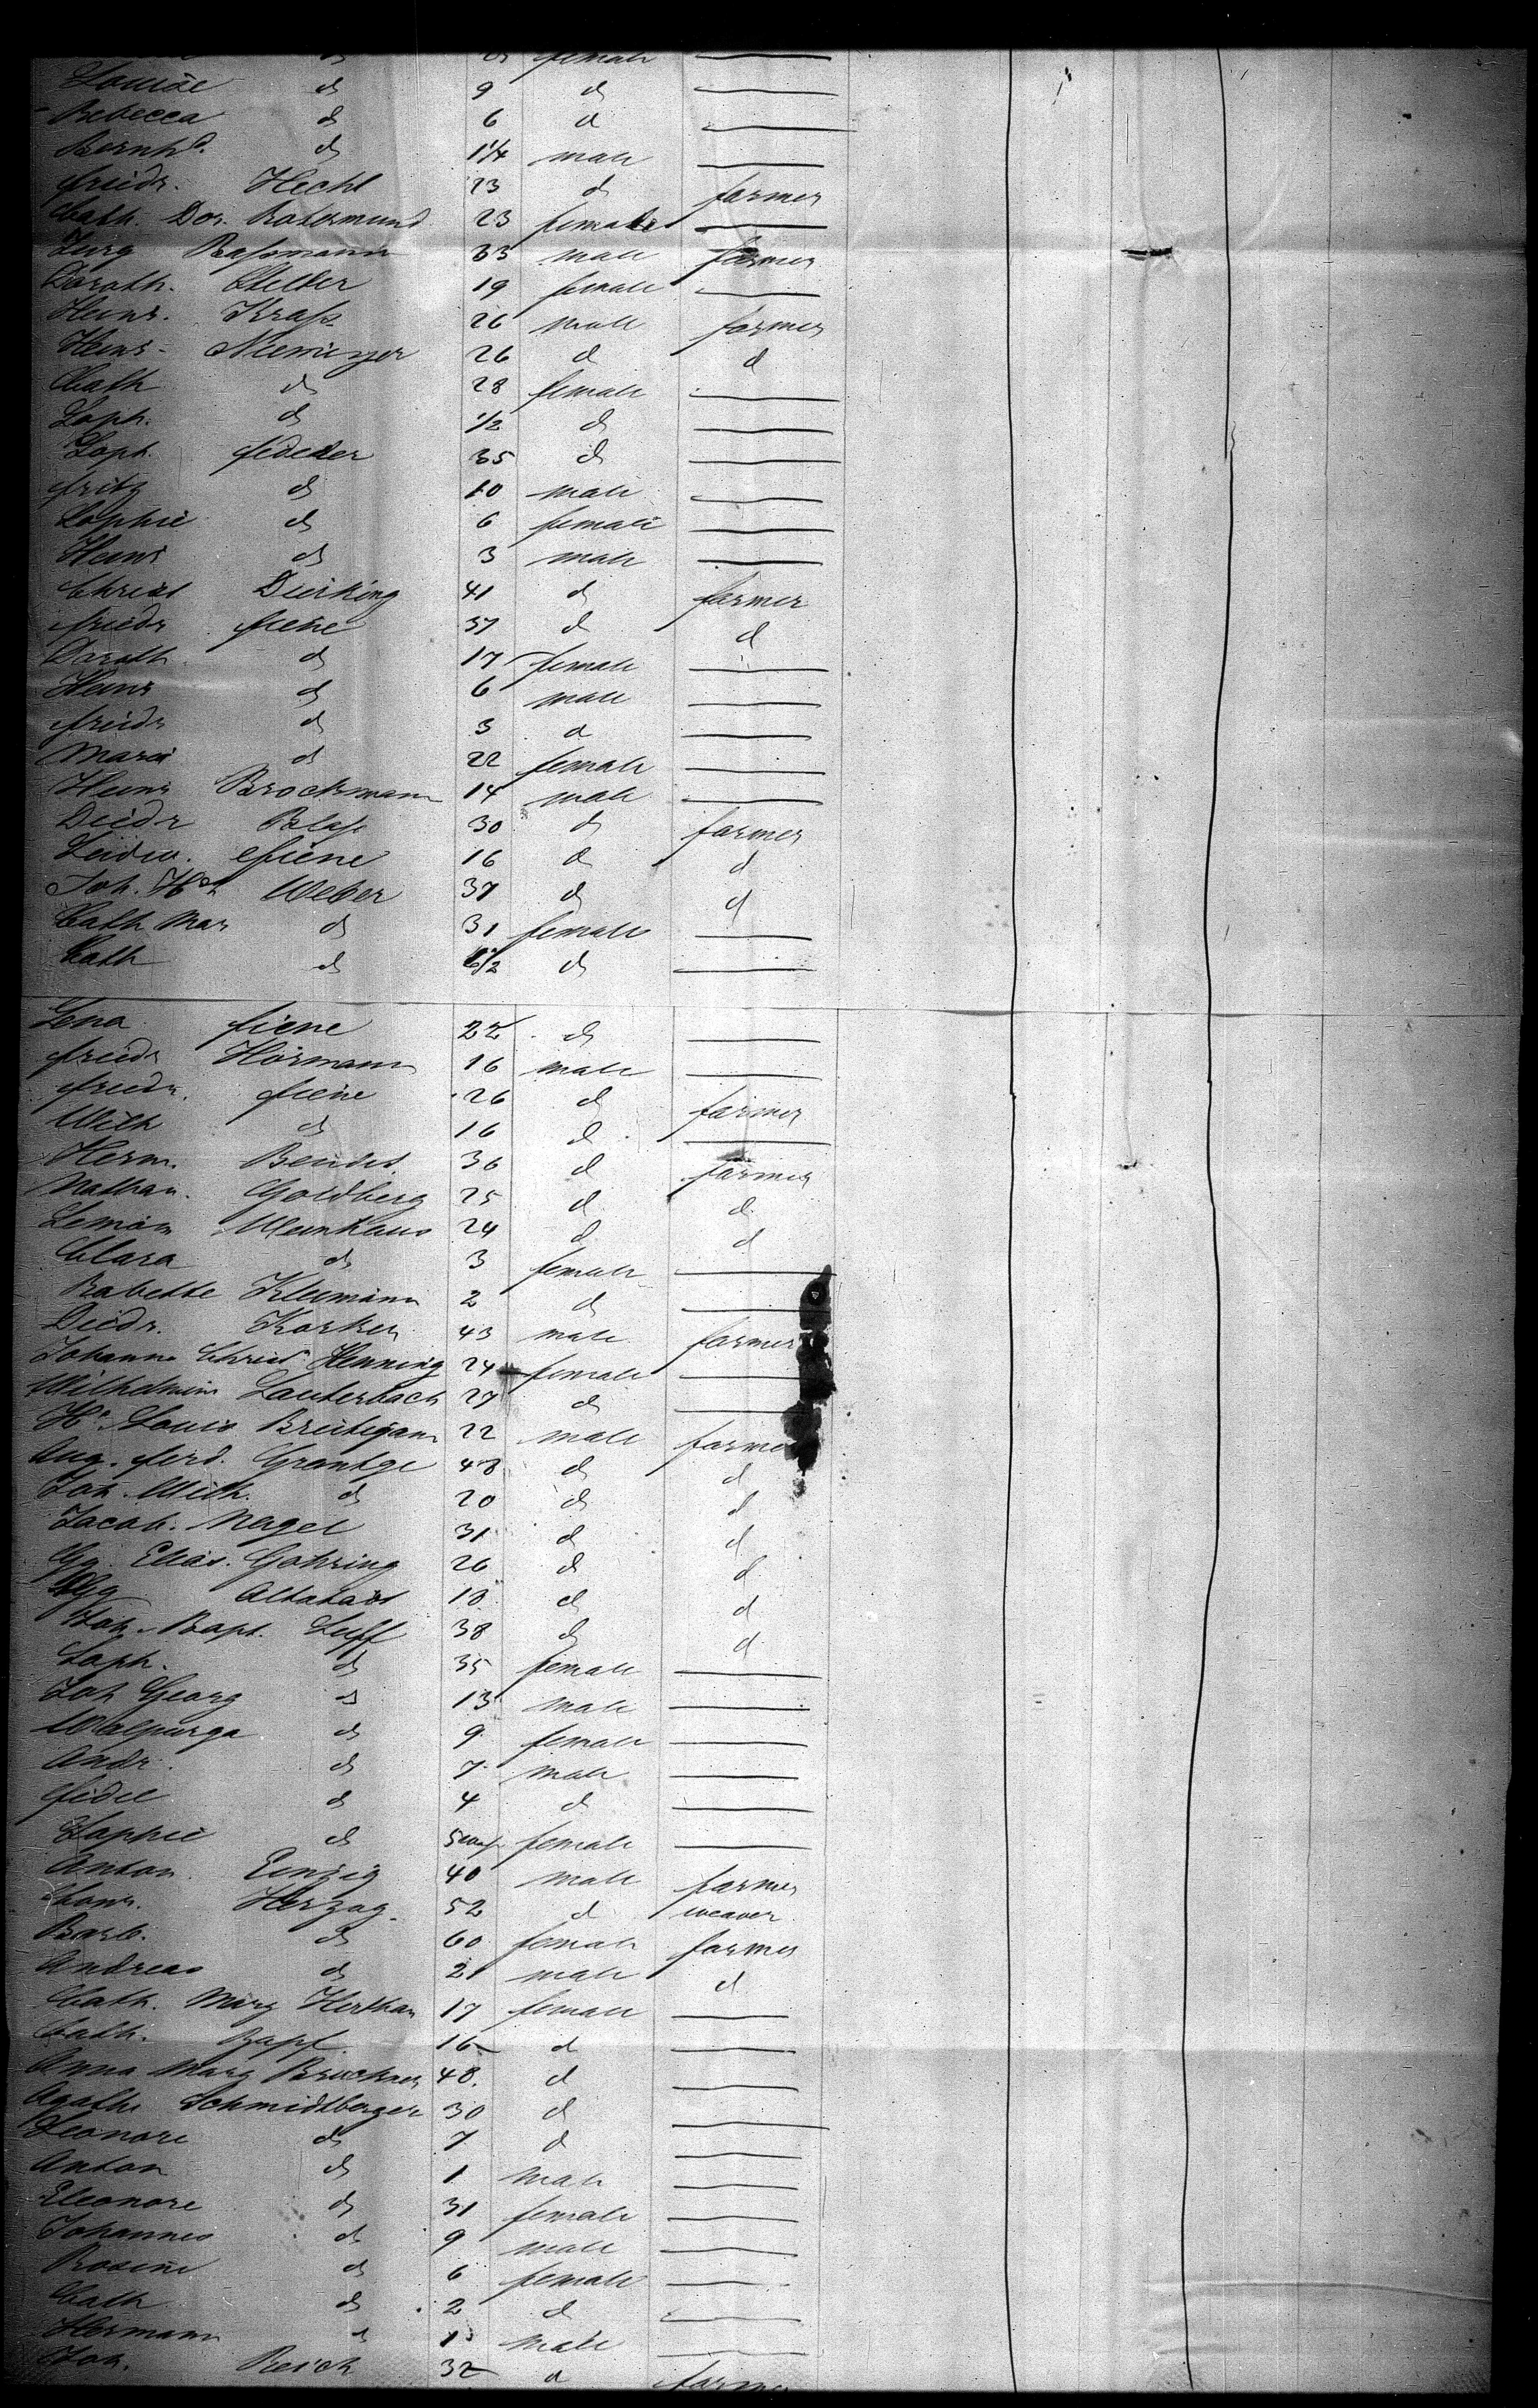 female
Louise d 9 d
Rebecca d 6 d
Bernhd. d 1 1/4 male
Friedr. Hecht 23 d farmer
Cath. Dor. Rotermund 23 female
Jurg Rassmann 33 male farmer
Doroth. 19 female
Heinr. Krass 26 male farmer
Heinr. Niemeyer 26 d d
Cath d 28 female
Soph. d 1/2 d
Soph. 35 d
Fritz d 10 male
Sophie d 6 female
Heinr d 3 male
Christ Duiking 41 d farmer
Friedr Fiene 37 d d
Doroth d 17 female
Heinr d 6 male
Friedr d 3 d
Maria d 22 female
Heinr Brockmann 14 male
Diedr Blase 30 d farmer
Ludw. Fiene 16 d d
Joh. Hch Weber 37 d d
Cath Mar d 31 female
Cath d d
Lena Fiene 22 d
Friedr Hörmann 16 male
Friedr. Fiene 26 d farmer
Wilh d 16 d
Herm. 36 d farmer
Nathan. Goldberg 25 d d
24 d d
Clara d 3 female
Babette Kleemann 2 d
Diedr. Korker 43 male farmer
Johanna Christ Henning 24 female
Wilhelmine Lauterbach 27 d
Hr. Louis Breitigam 22 male farmer
Aug. Ferd. Grantge 48 d d
Joh. Wilh. d 20 d d
Jacob. Nagel 31 d d
Gg. Elias. Gohring 26 d d
18 d d
Joh. Bapt. Luff 38 d d
Soph. d 35 female
Joh Georg d 13 male
Walpurga d 9 female
Andr. d 7 male
Fidel d 4 d
Sophie d female
Anton. Einzig 40 male farmer
Conr. Herzog. 52 d weaver
Barb. d 60 female farmer
Andreas d 21 male d
Cath. Marg 17 female
Cath. Zapf 16 d
Anna Marg Bruckner 48. d
Agathe Schmidtberger 30 d
Leonore d 7 d
Anton d 1 male
Eleonore d 31 female
Johannes d 9 male
Rosine d 6 female
Cath d 2 d
Hermann d 1 male
Joh. Reich 32 d farmer